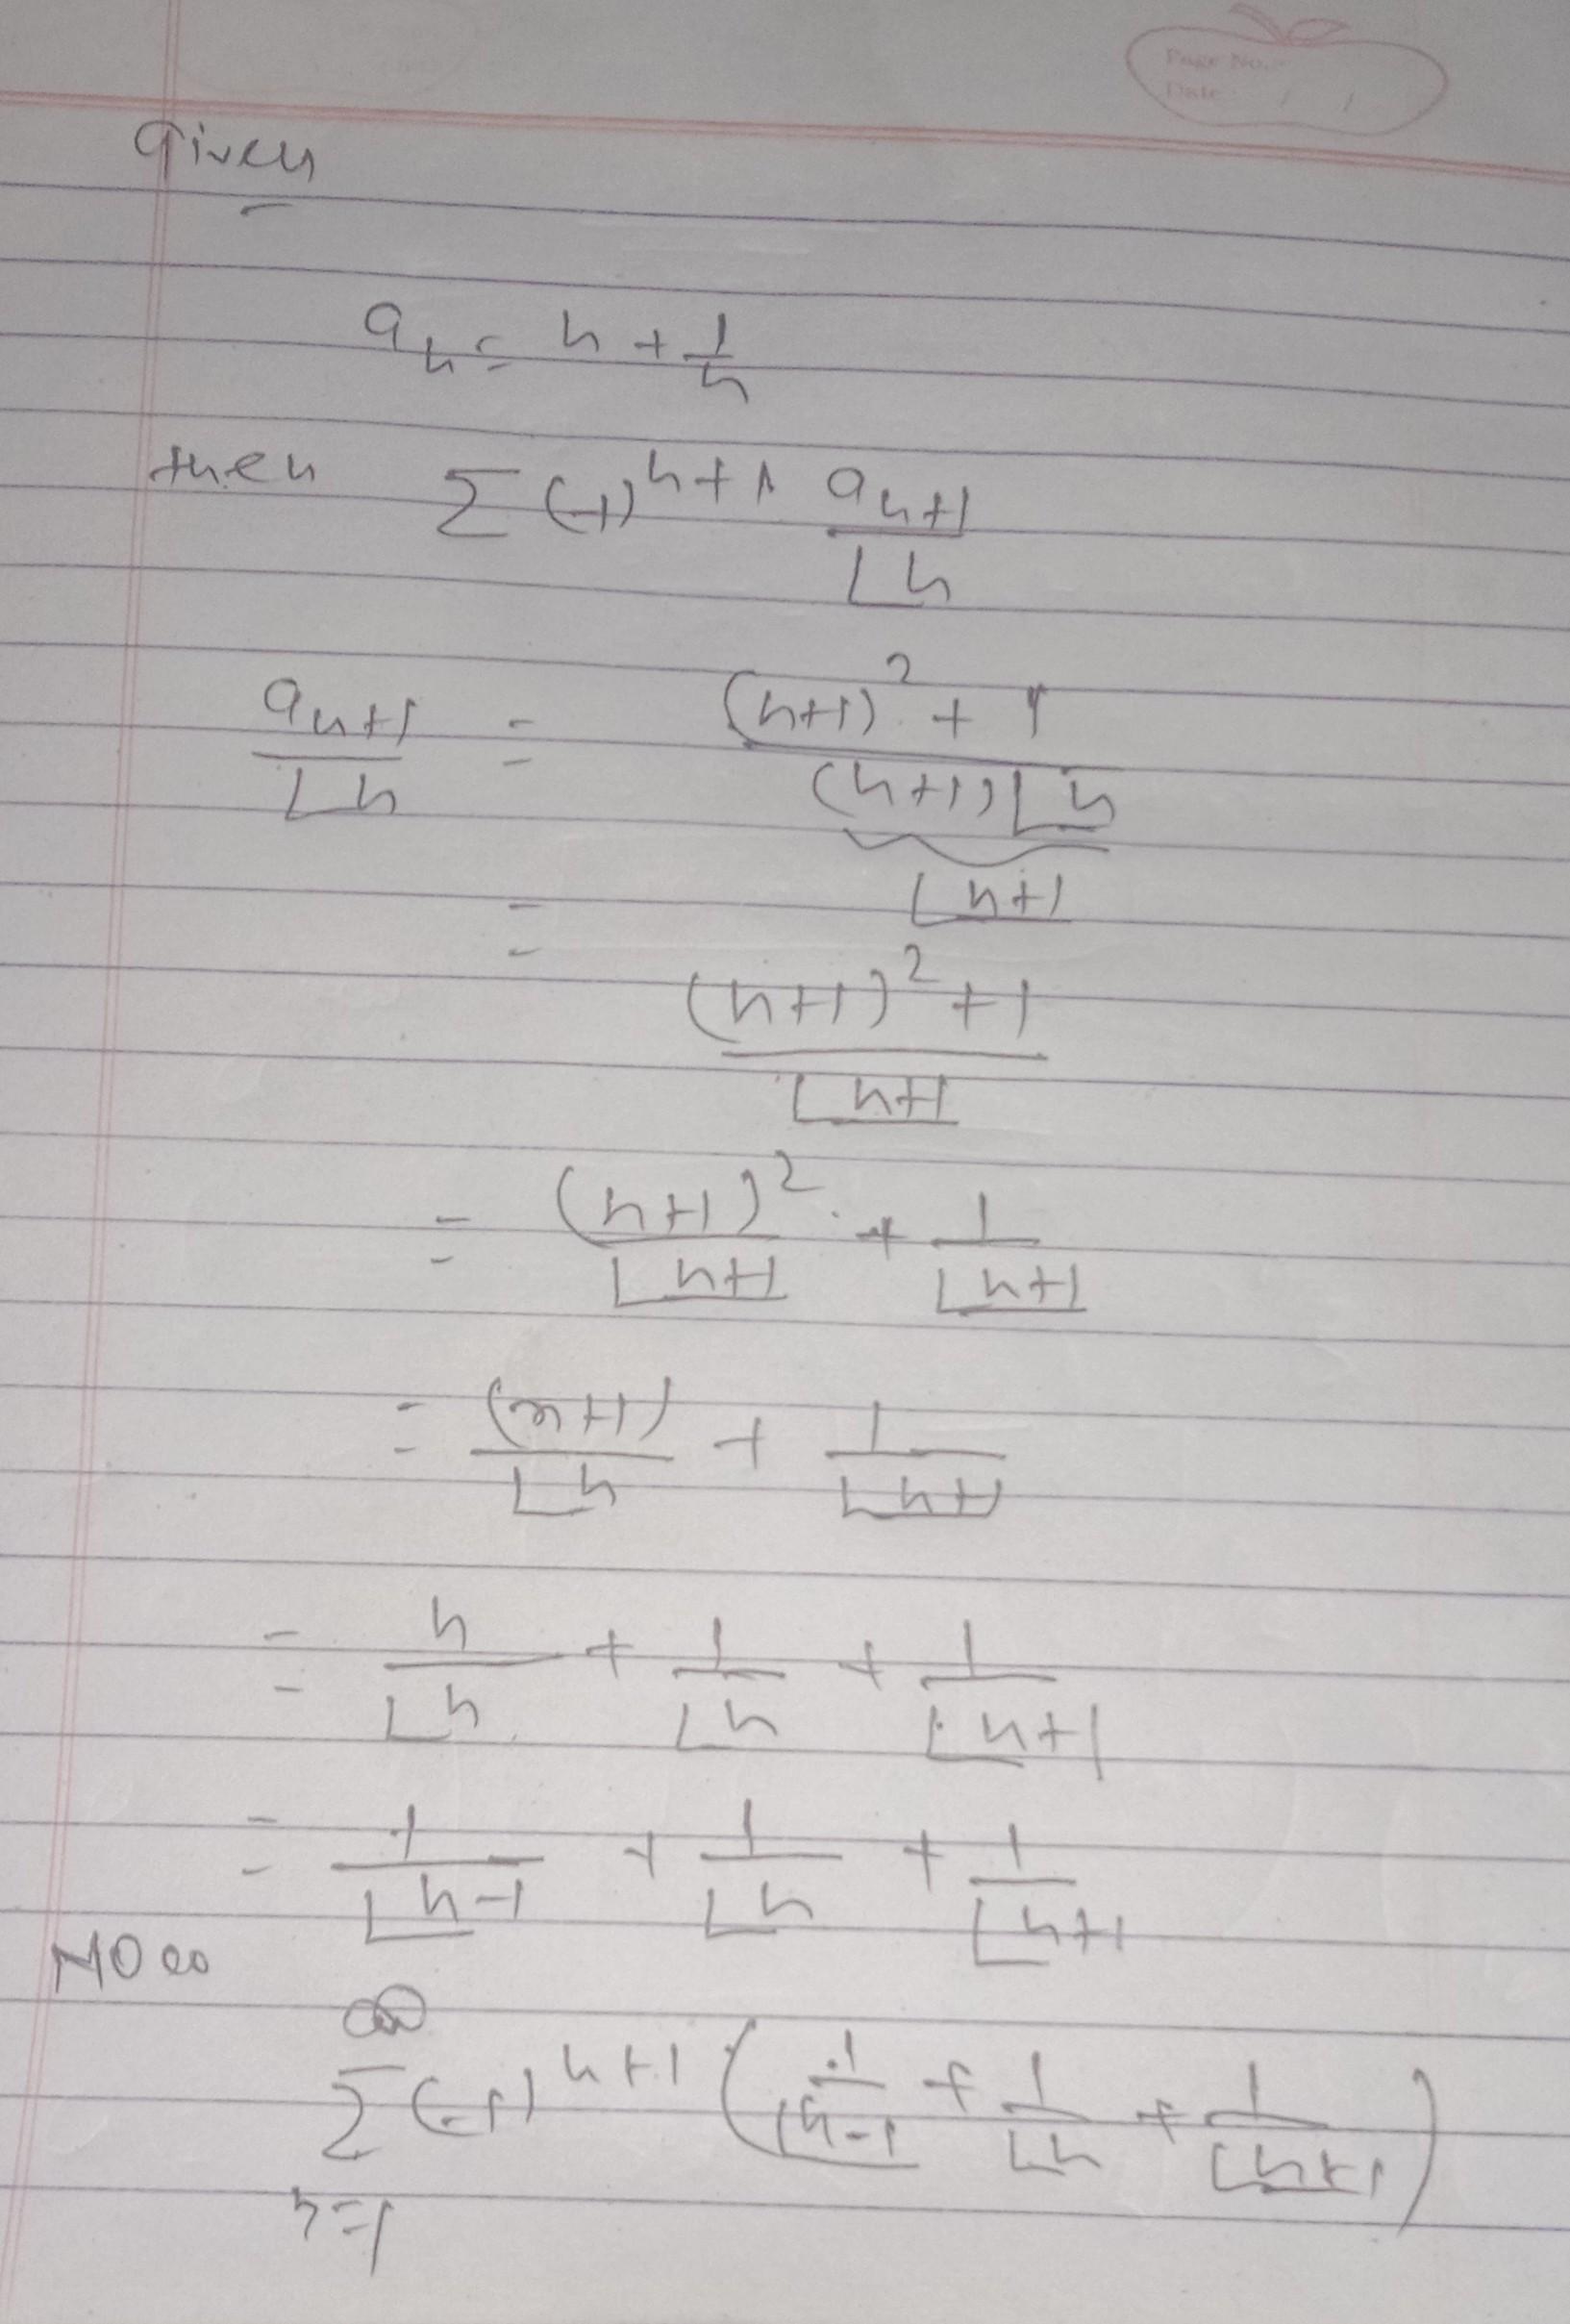 Page No.:
Date: / /
Given
a_n = n + 1/n
then Σ (-1)^{n+1} a_{n+1}/∟n
a_{n+1}/∟n = ((n+1)^2 + 1)/((n+1)∟n)
∟n+1
= ((n+1)^2 + 1)/∟n+1
= (n+1)^2/∟n+1 + 1/∟n+1
= (n+1)/∟n + 1/∟n+1
= n/∟n + 1/∟n + 1/∟n+1
= 1/∟n-1 + 1/∟n + 1/∟n+1
Now
∞
Σ (-1)^{n+1} (1/∟n-1 + 1/∟n + 1/∟n+1)
n=1